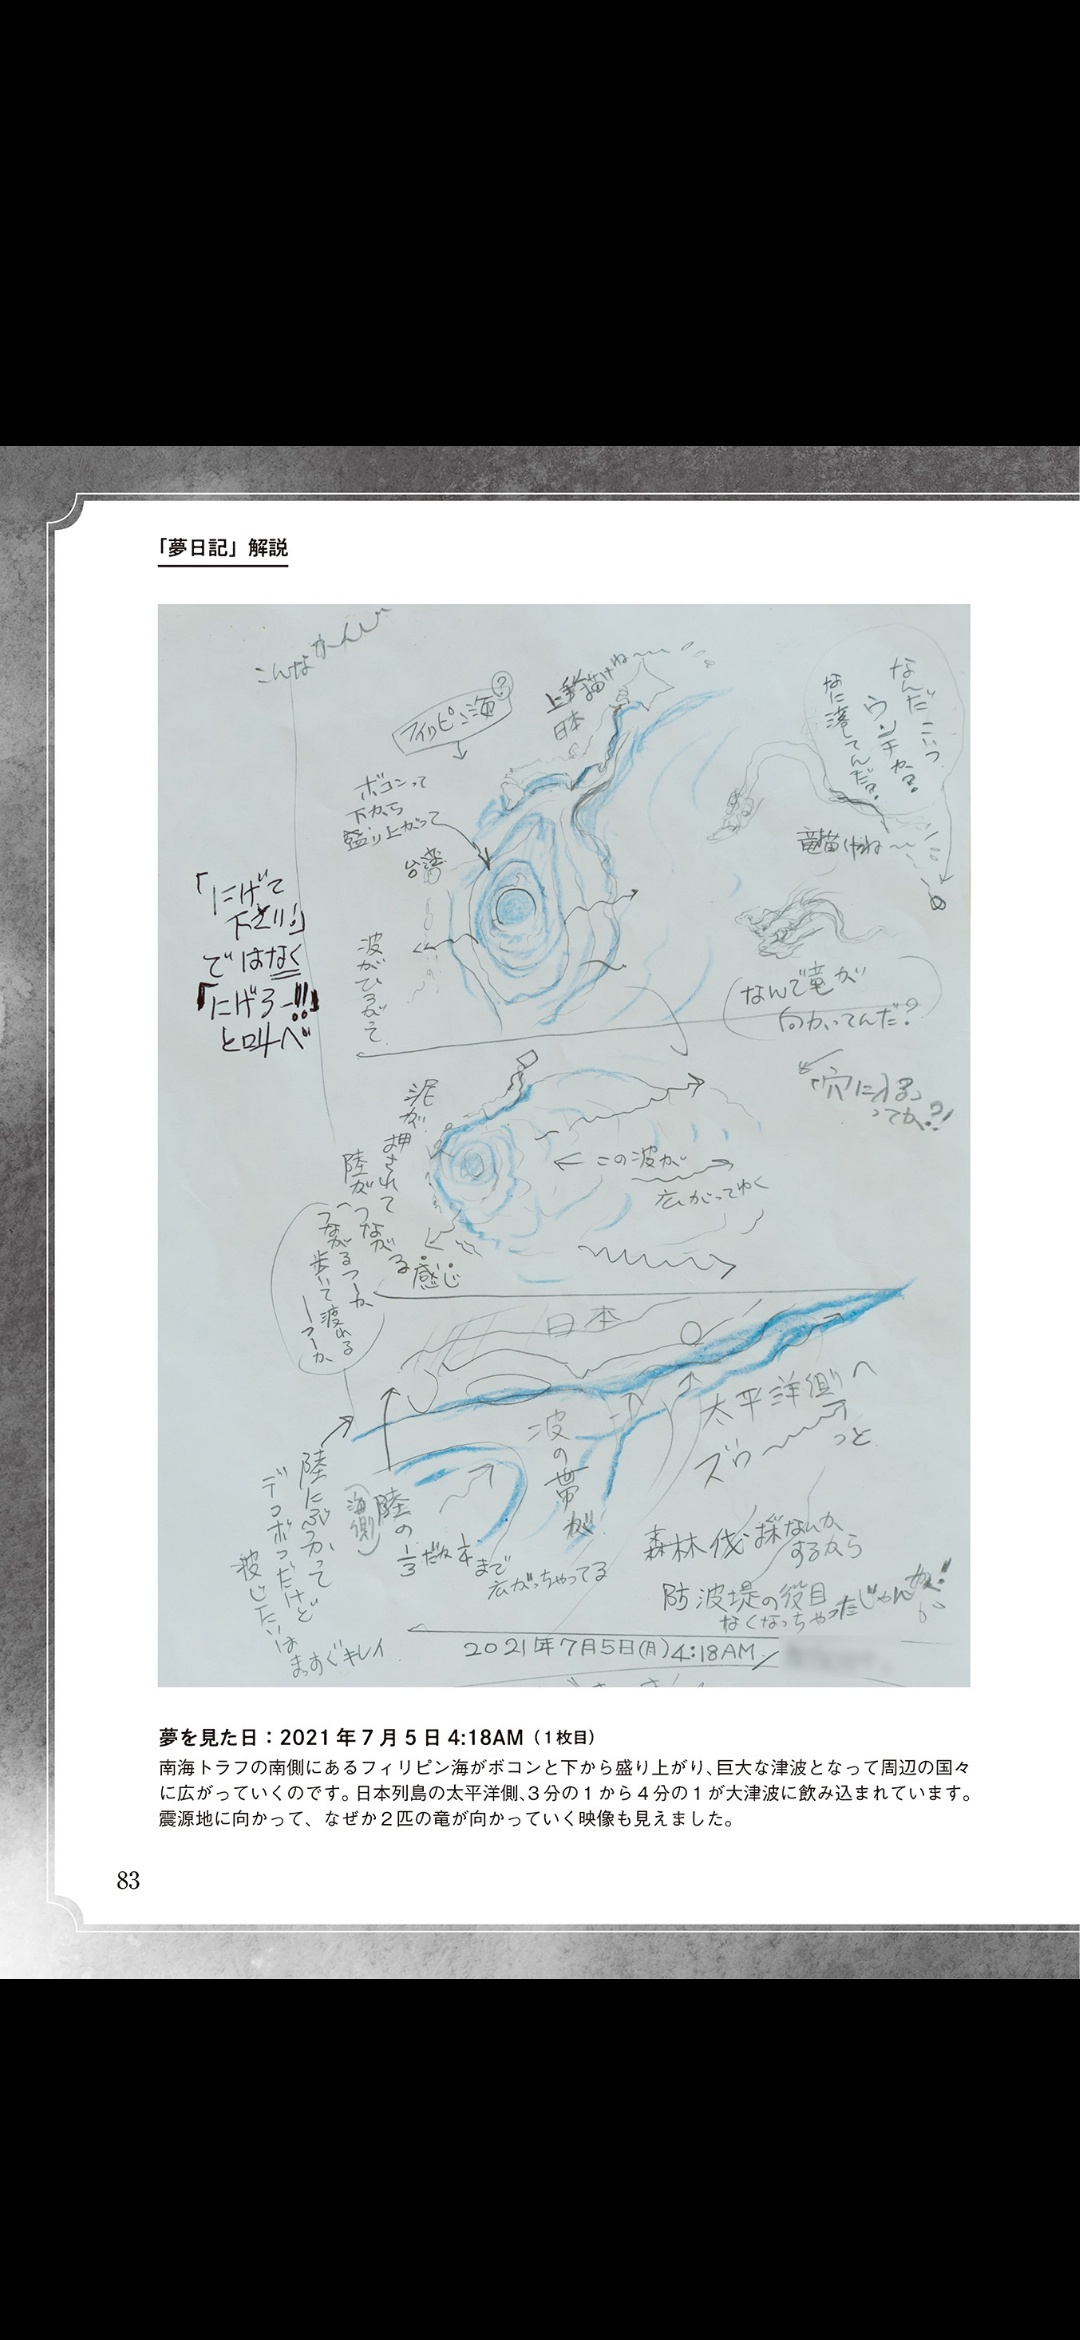 「夢日記」解説
こんなかんじ
フィリピン海?
上手く描けね〜
日本
ボコンって
下から
盛り上がって
台湾
波がひろがって
なんだこいつ
ウンチか?
なに落してんだ?
竜描けね〜
なんで竜が
向かってんだ?
「穴に入る」
ってか?!
「にげて
下さい!」
ではなく
「にげろー!!」
と叫べ
泥が押されて
陸がつながる感じ
つながるつーか
歩いて渡れる
ーつーか
この波が
広がってゆく
日本
太平洋側へ
ズゥ〜〜っと
波の帯が
陸にぶつかって
デコボコだけど
波じたいは
まっすぐキレイ
(海側)
陸の
1/3だね 1/4まで
広がっちゃってる
森林伐採なんか
するから
防波堤の役目
なくなっちゃったじゃんか!
2021年7月5日(月)4:18AM
夢を見た日:2021年7月5日 4:18AM(1枚目)
南海トラフの南側にあるフィリピン海がボコンと下から盛り上がり、巨大な津波となって周辺の国々
に広がっていくのです。日本列島の太平洋側、3分の1から4分の1が大津波に飲み込まれています。
震源地に向かって、なぜか2匹の竜が向かっていく映像も見えました。
83